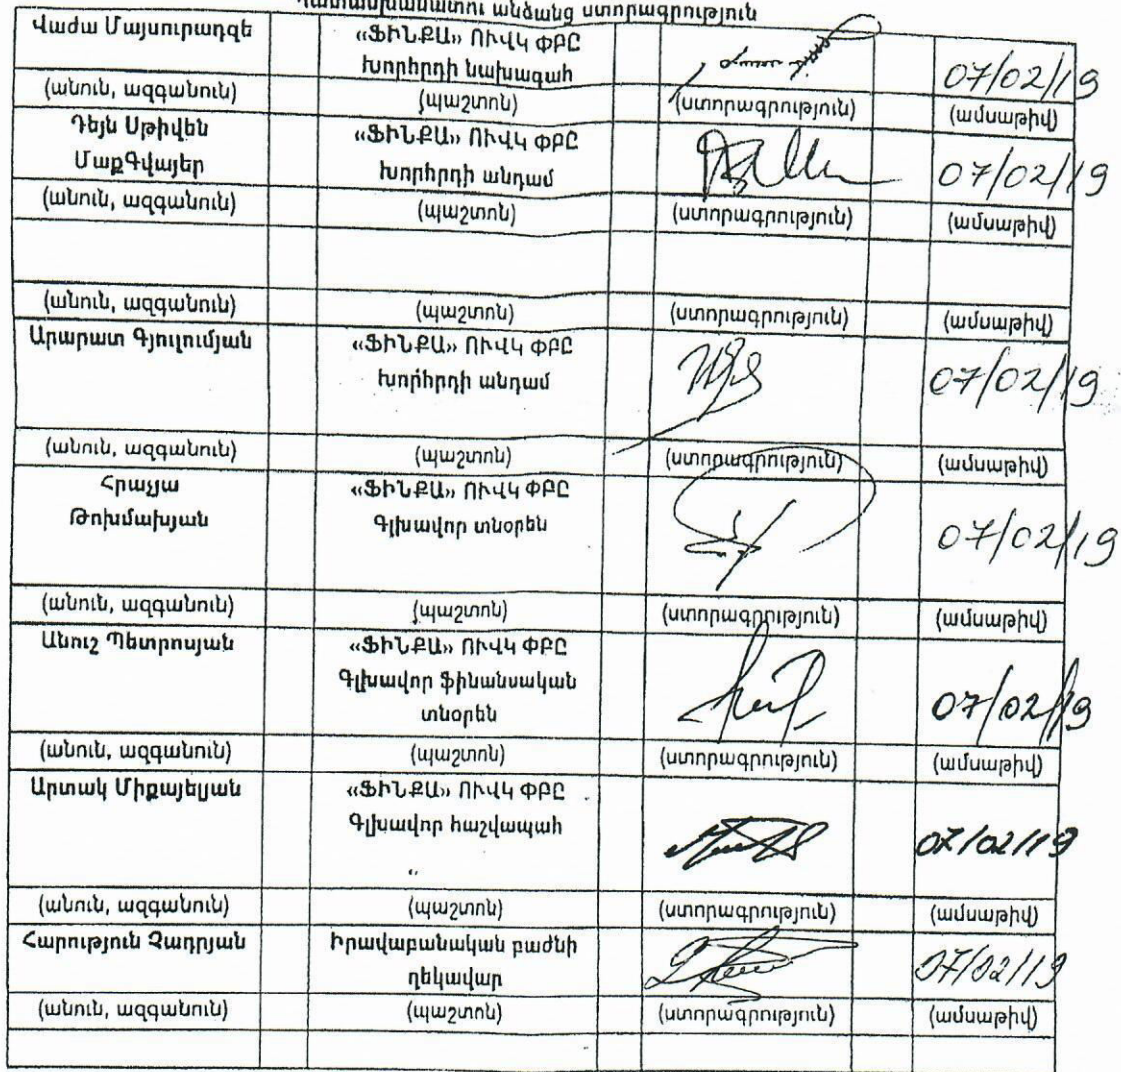 Պատասխանատու անձանց ստորագրություն
Վաժա Մայսուրաձզե «ՖԻՆՔԱ» ՈՒՎԿ ՓԲԸ 07/02/19
Խորհրդի նախագահ
(անուն, ազգանուն) (պաշտոն) (ստորագրություն) (ամսաթիվ)
Դեյն Սթիվեն «ՖԻՆՔԱ» ՈՒՎԿ ՓԲԸ 07/02/19
ՄաքԳվայեր Խորհրդի անդամ
(անուն, ազգանուն) (պաշտոն) (ստորագրություն) (ամսաթիվ)
(անուն, ազգանուն) (պաշտոն) (ստորագրություն) (ամսաթիվ)
Արարատ Գյուլումյան «ՖԻՆՔԱ» ՈՒՎԿ ՓԲԸ 07/02/19
Խորհրդի անդամ
(անուն, ազգանուն) (պաշտոն) (ստորագրություն) (ամսաթիվ)
Հրաչյա «ՖԻՆՔԱ» ՈՒՎԿ ՓԲԸ 07/02/19
Թոխմախյան Գլխավոր տնօրեն
(անուն, ազգանուն) (պաշտոն) (ստորագրություն) (ամսաթիվ)
Անուշ Պետրոսյան «ՖԻՆՔԱ» ՈՒՎԿ ՓԲԸ 07/02/19
Գլխավոր ֆինանսական
տնօրեն
(անուն, ազգանուն) (պաշտոն) (ստորագրություն) (ամսաթիվ)
Արտակ Միքայելյան «ՖԻՆՔԱ» ՈՒՎԿ ՓԲԸ 07/02/19
Գլխավոր հաշվապահ
(անուն, ազգանուն) (պաշտոն) (ստորագրություն) (ամսաթիվ)
Հարություն Չադրյան Իրավաբանական բաժնի 07/02/19
ղեկավար
(անուն, ազգանուն) (պաշտոն) (ստորագրություն) (ամսաթիվ)